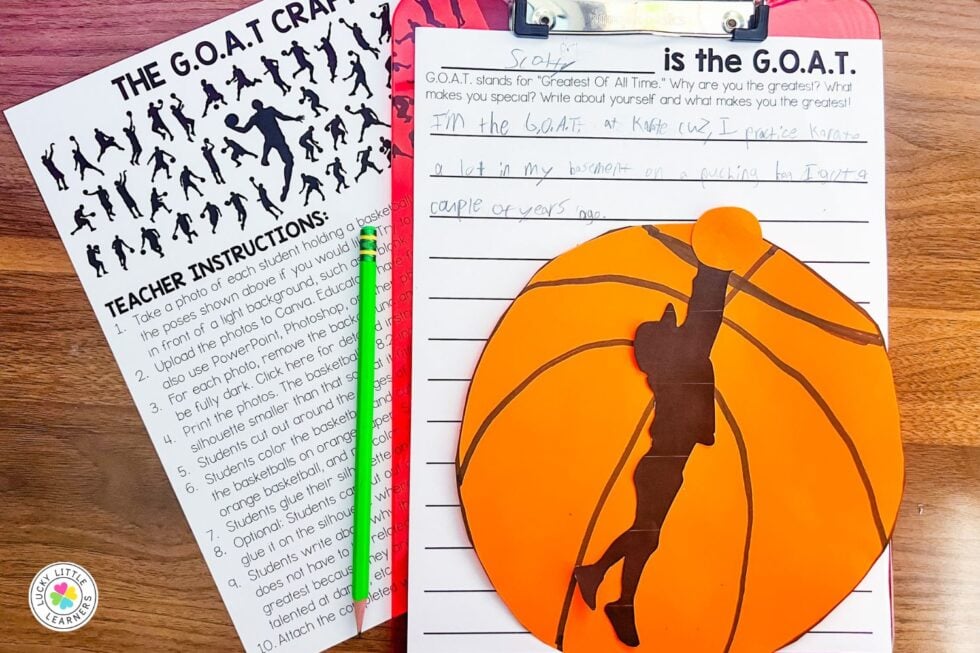 THE G.O.A.T CRAF
TEACHER INSTRUCTIONS:
1. Take a photo of each student holding a basketball
the poses shown above if you would li
in front of a light background, such as
2. Upload the photos to Canva. Educator
also use PowerPoint, Photoshop, or
3. For each photo, remove the backgrou
be fully dark. Click here for detailed
4. Print the photos. The basketball
silhouette smaller than that so
5. Students cut out around the
6. Students color the basketball
the basketballs on orange
orange basketball, and
7. Students glue their silhouette
8. Optional: Students
glue it on the silhouette
9. Students write about
does not have to
greatest because they
talented at dance, etc
10. Attach the completed
Scotty is the G.O.A.T.
G.O.A.T. stands for "Greatest Of All Time." Why are you the greatest? What
makes you special? Write about yourself and what makes you the greatest!
I'm the G.O.A.T. at Karate cuz, I practice Karate
a lot in my basement on a puching bag I got a
couple of years ago.
LUCKY LITTLE LEARNERS